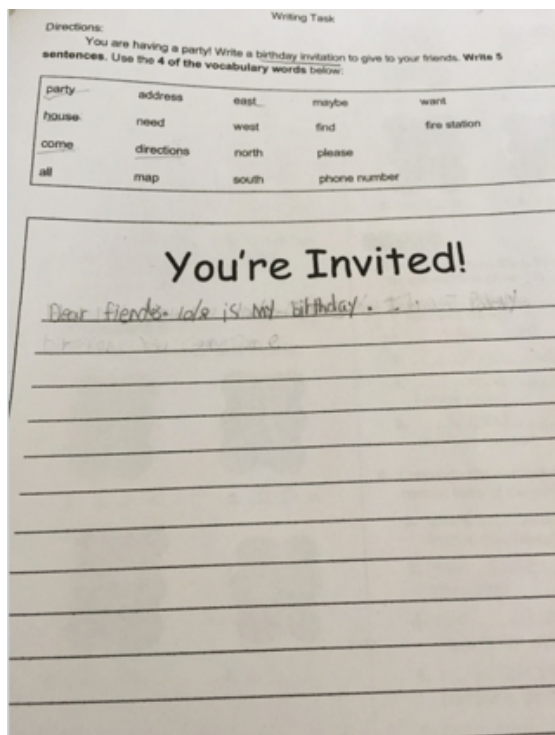 Writing Task
Directions:
You are having a party! Write a birthday invitation to give to your friends. Write 5
sentences. Use the 4 of the vocabulary words below:
party address east maybe want
house need west find fire station
come directions north please
all map south phone number
You're Invited!
Dear fiendes. is My birthday.